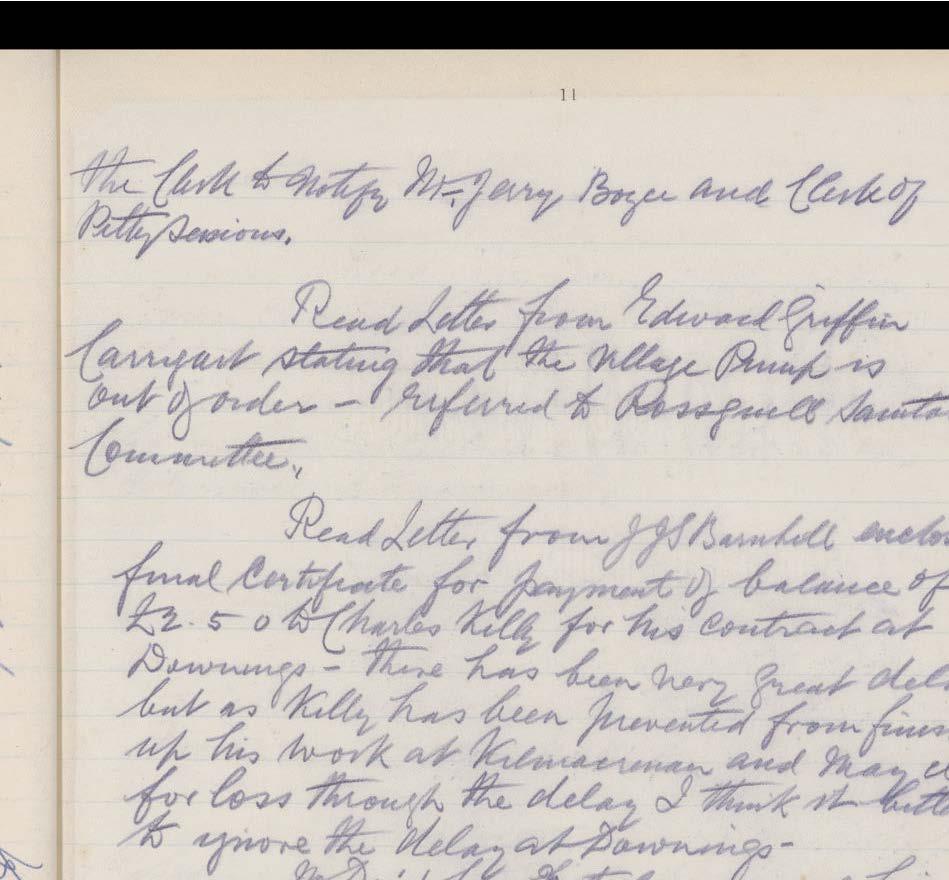 11
The Clerk to Notify Mr. Jerry Boyce and Clerk of
Petty Sessions.
Read Letter from Edward Griffin
Carrigart stating that the village Pump is
out of order - referred to Rossguill Sanita
Committee.
Read Letter from JGS Barnhill enclos
final Certificate for payment of balance of
£2. 5 0 to Charles Kelly for his contract at
Downings - there has been very great dela
but as Kelly has been prevented from finis
up his work at Kilmacrenan and May cl
for loss through the delay I think it bette
to ignore the delay at Downings -